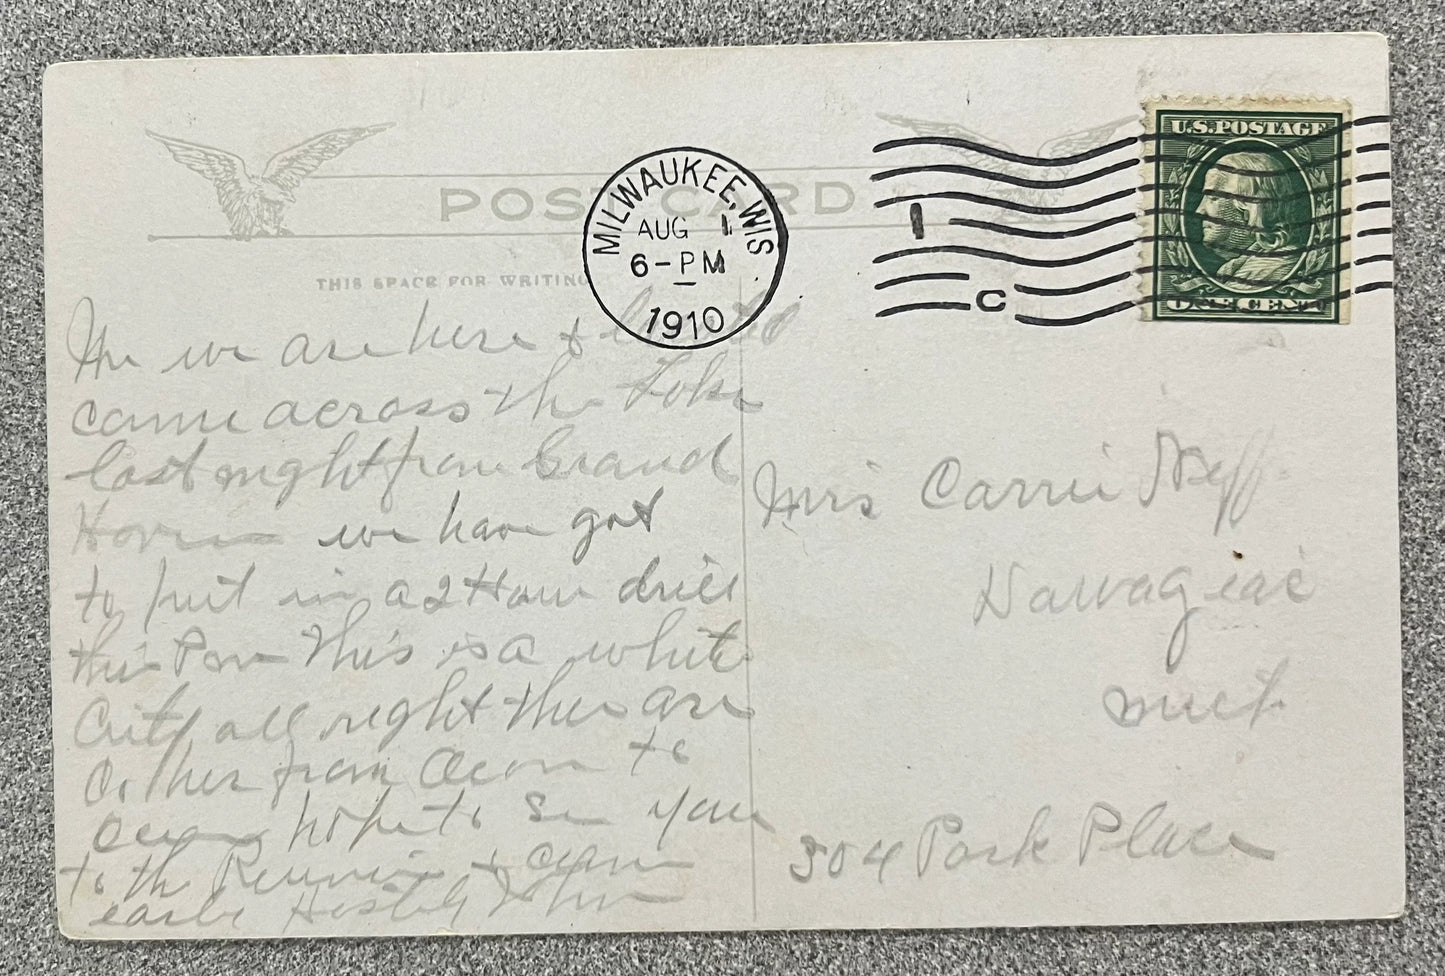 POST CARD
THIS SPACE FOR WRITING
MILWAUKEE, WIS.
AUG 1
6-PM
1910
1
C
U.S. POSTAGE
ONE CENT
we are here &
came across the Lake
last night from Grand
Haven we have got
to put in a 2 Hour drill
this Pm This is a white
City all right ther are
from Ocean to
hope to see you
to the Reunion &
John
Mris Carrie Neff
Dowagiac
Mich
504 Park Place